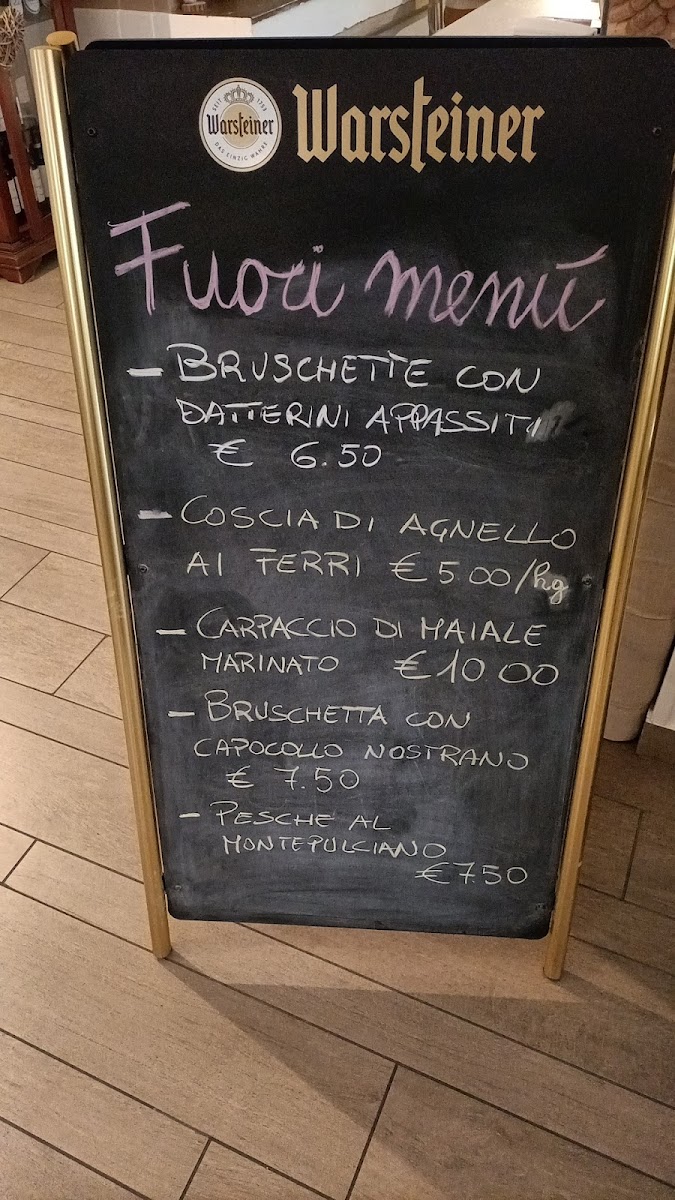 SEIT 1753
Warsteiner
DAS EINZIG WAHRE
Warsteiner
Fuori menú
- BRUSCHETTE CON
DATTERINI APPASSITI
€ 6.50
- COSCIA DI AGNELLO
AI FERRI € 5 00/hg
- CARPACCIO DI MAIALE
MARINATO € 10 00
- BRUSCHETTA CON
CAPOCOLLO NOSTRANO
€ 7.50
- PESCHE AL
MONTEPULCIANO
€ 7.50